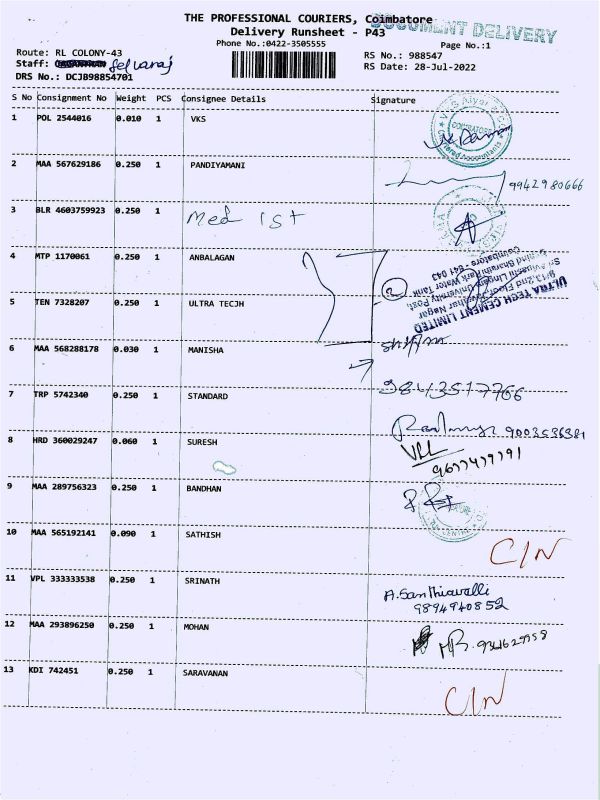 THE PROFESSIONAL COURIERS, Coimbatore
DOCUMENT DELIVERY
Delivery Runsheet - P43
Phone No.:0422-3505555
Page No.:1
Route: RL COLONY-43
RS No.: 988547
Staff: Selvaraj
RS Date: 28-Jul-2022
DRS No.: DCJB98854701
S No Consignment No Weight PCS Consignee Details Signature
1 POL 2544016 0.010 1 VKS
2 MAA 567629186 0.250 1 PANDIYAMANI
9942980666
3 BLR 4603759923 0.250 1 Med 1st
4 MTP 1170061 0.250 1 ANBALAGAN
5 TEN 7328207 0.250 1 ULTRA TECJH
ULTRA TECH CEMENT LIMITED
6 MAA 568288178 0.030 1 MANISHA
7 TRP 5742340 0.250 1 STANDARD
9843517766
8 HRD 360029247 0.060 1 SURESH
9003536381
VRL
9677477191
9 MAA 289756323 0.250 1 BANDHAN
10 MAA 565192141 0.090 1 SATHISH
C/N
11 VPL 333333538 0.250 1 SRINATH
A. Santhiavalli
9894940852
12 MAA 293896250 0.250 1 MOHAN
13 KDI 742451 0.250 1 SARAVANAN
C/N